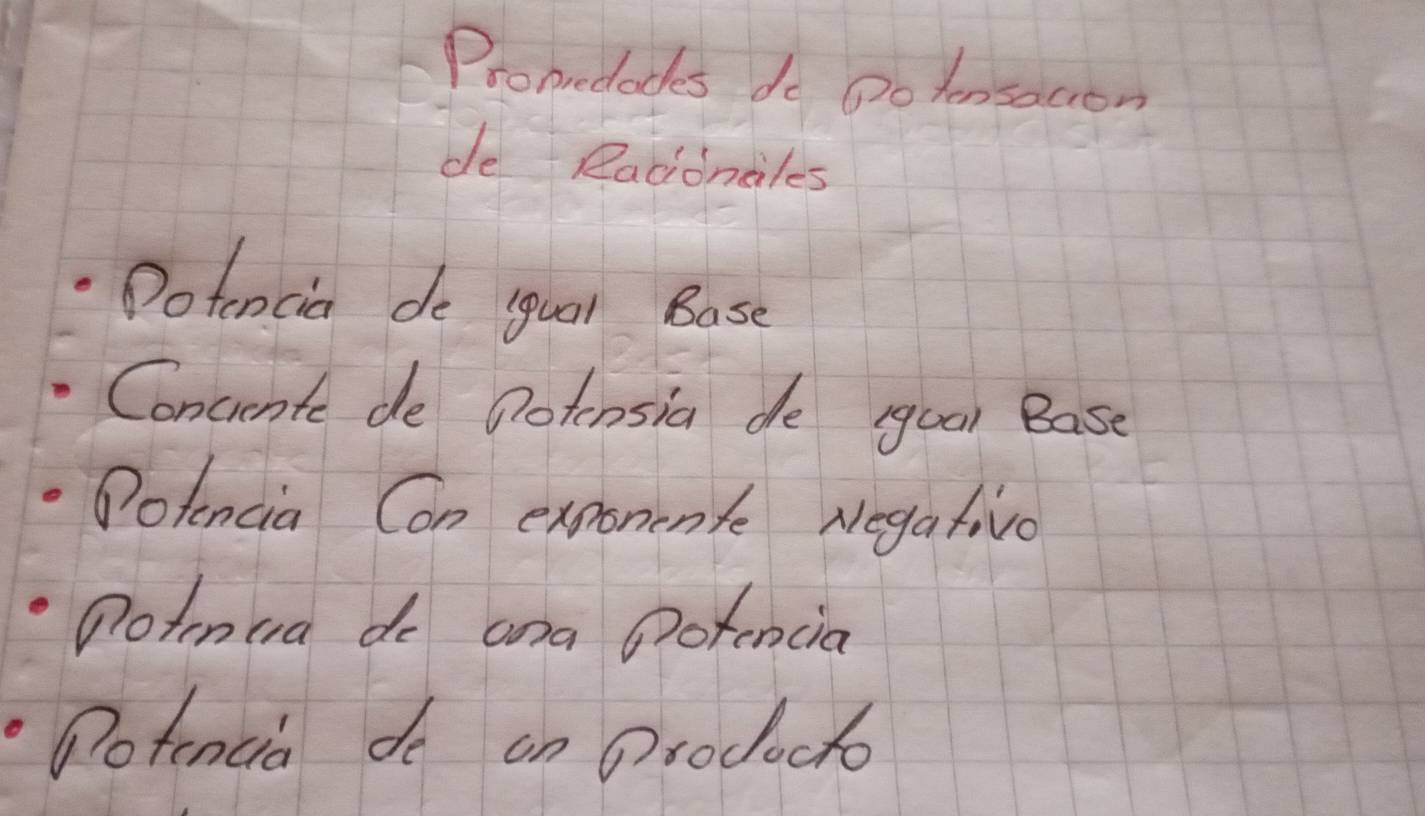 Propiedades de Potensacion
de Racionales
• Potencia de igual Base
• Conciente de Potensia de igual Base
• Potencia Con exponente Negativo
• Potencia de una Potencia
• Potencia de un Producto